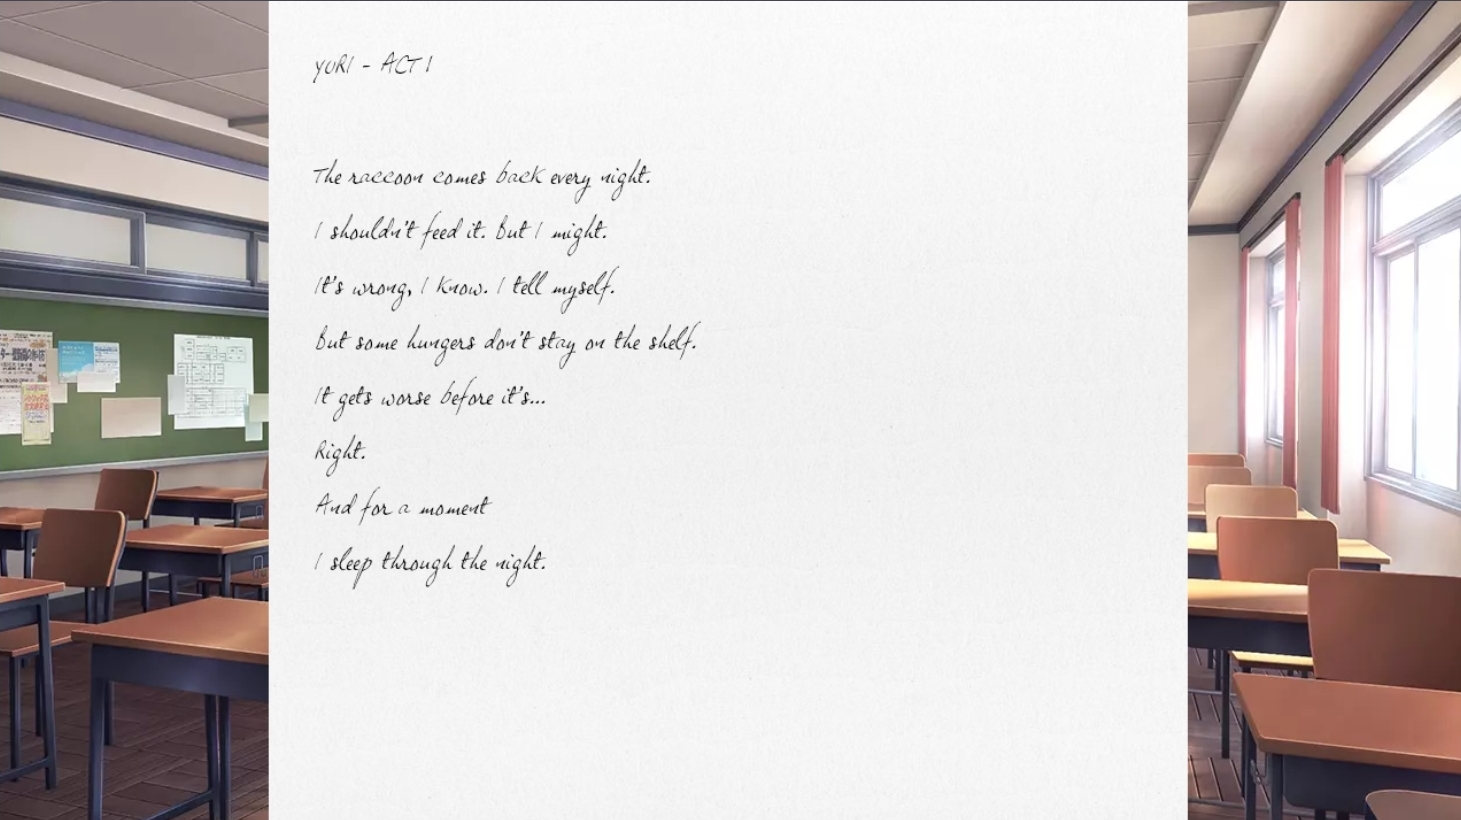 YURI - ACT 1
The raccoon comes back every night.
I shouldn't feed it. But I might.
It's wrong, I know. I tell myself.
But some hungers don't stay on the shelf.
It gets worse before it's...
Right.
And for a moment
I sleep through the night.